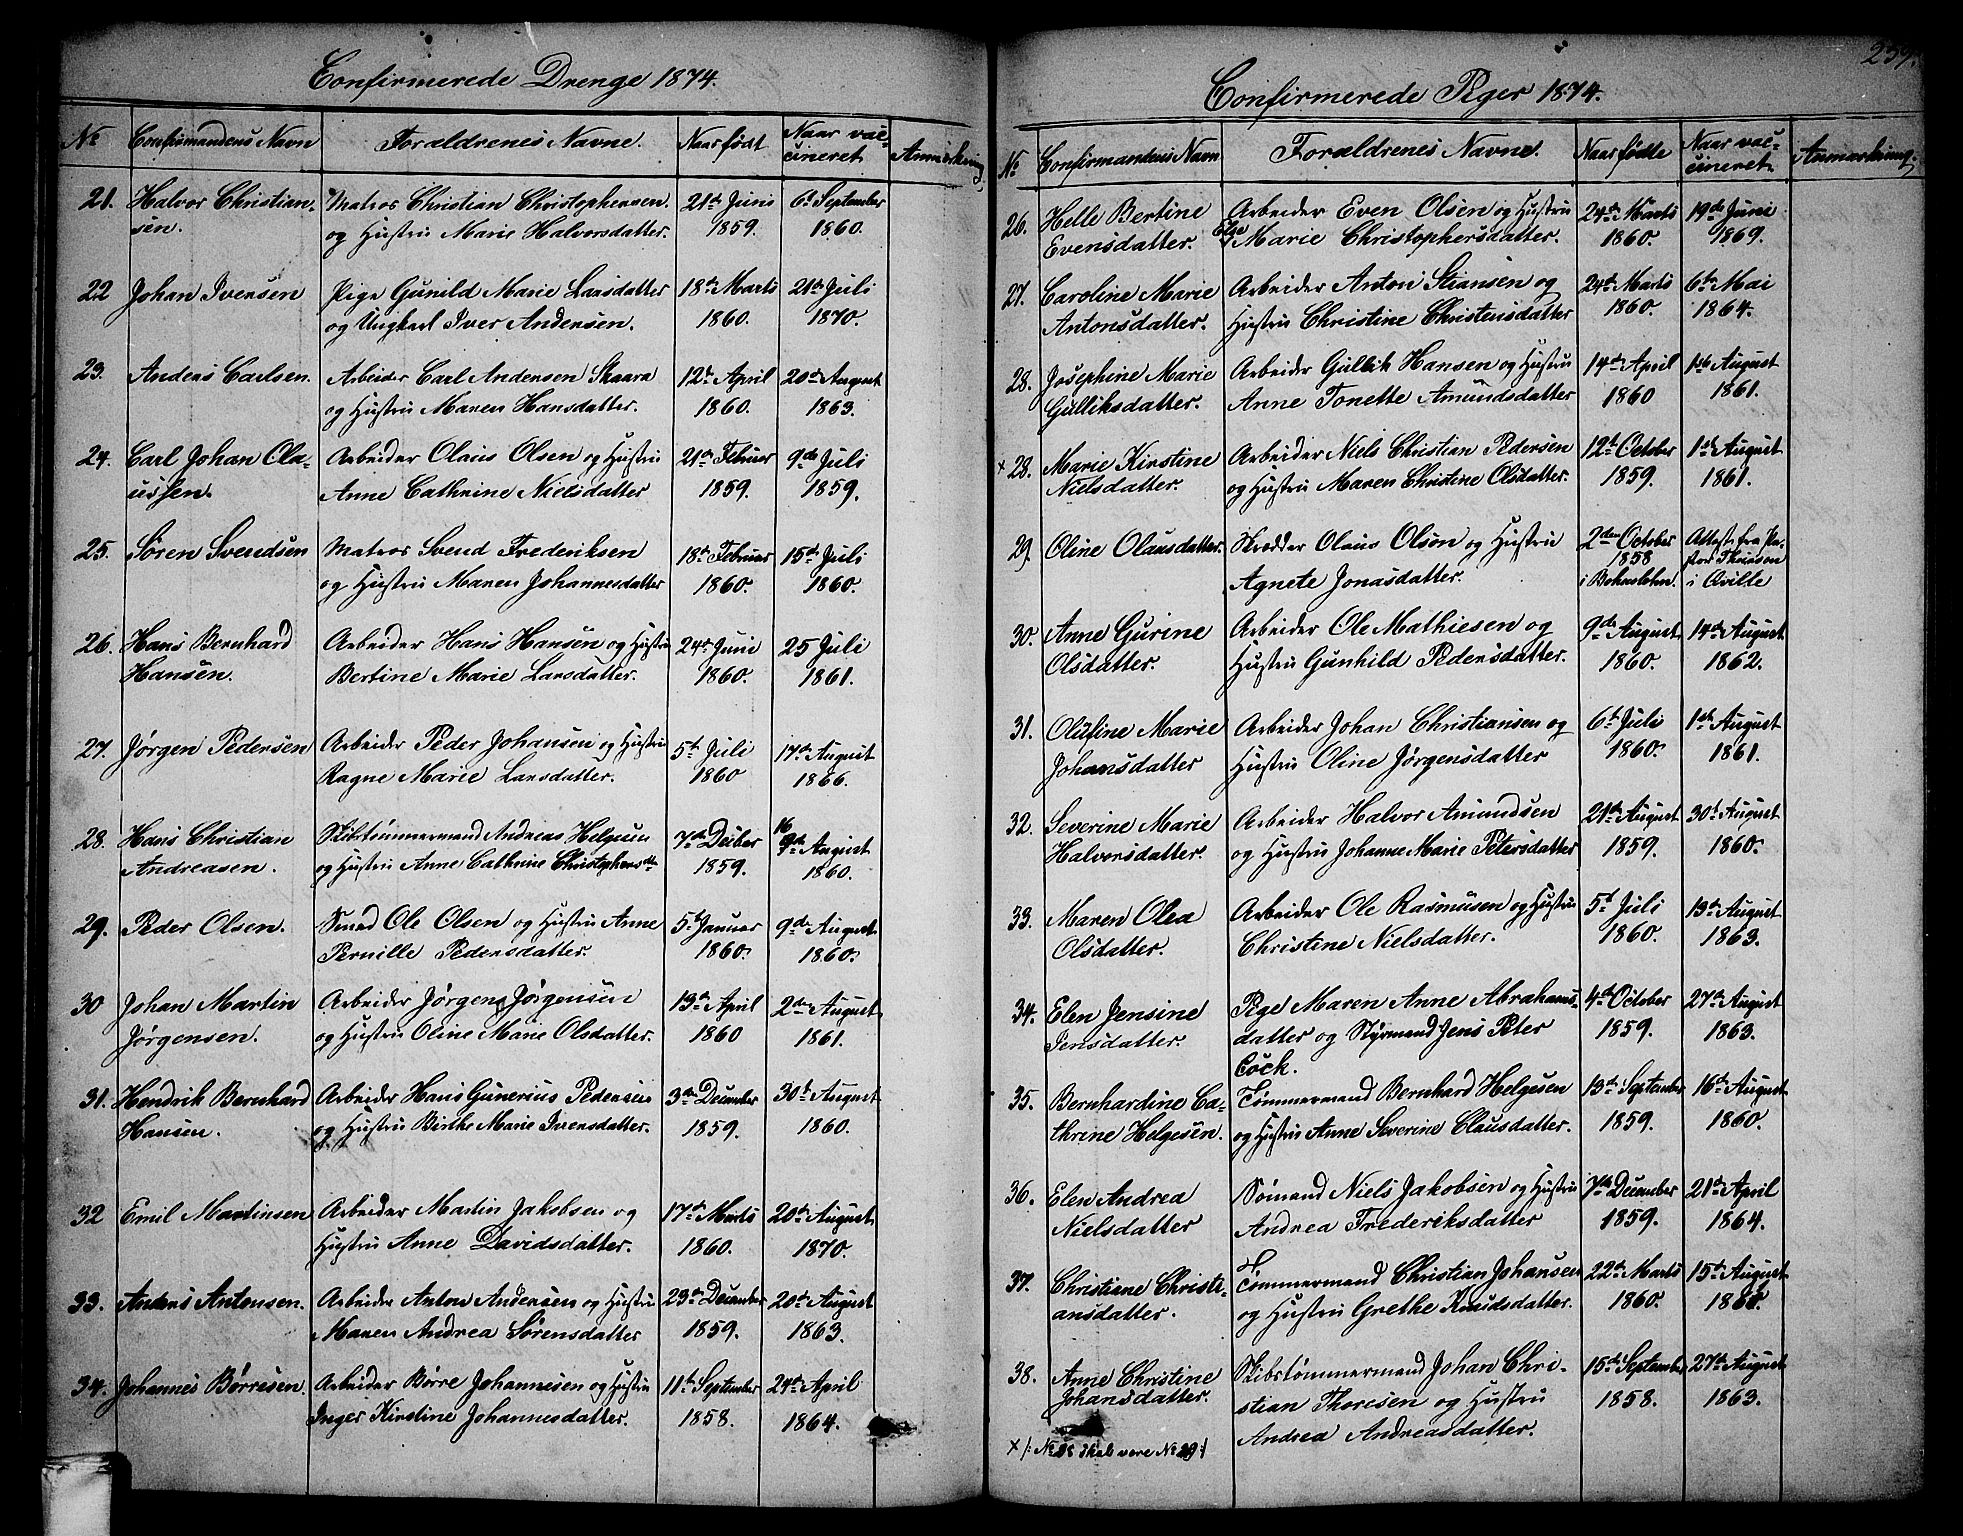 Confirmerede Drenge 1874.
No Confirmandens Navn Forældrenes Navne. Naar født Naar vac- Anmærkning
cineret
21. Halvor Christian- Matros Christian Christophersen 21de Juni 6te September
sen. og Hustru Marie Halvorsdatter. 1859. 1860.
22 Johan Iversen Pige Gunild Marie Larsdatter 18de Marts 21de Juli
og Ungkarl Iver Andersen. 1860. 1870.
23. Anders Carlsen. Arbeider Carl Andersen Skaara 12te April 20de August
og Hustru Maren Hansdatter. 1860. 1863.
24. Carl Johan Ola- Arbeider Olaus Olsen og Hustru 21de Februar 9de Juli
ussen. Anne Cathrine Nielsdatter 1859. 1859.
25. Søren Svendsen Matros Svend Frederiksen 18de Februar 15de Juli
og Hustru Maren Johannesdatter 1860. 1860.
26. Hans Bernhard Arbeider Hans Hansen og Hustru 24de Juni 25 Juli
Hansen. Bertine Marie Larsdatter. 1860. 1861.
27. Jørgen Pedersen Arbeider Peder Johansen og Hustru 5te Juli 17de August
Ragne Marie Larsdatter. 1860 1866.
28. Hans Christian Skibtømmermand Andreas Helgesen 7de Decber 16 August
Andreasen. og Hustru Anne Cathrine Christophersdtr 1859. 1860.
29. Peder Olsen. Smed Ole Olsen og Hustru Anne 5te Januar 9de August
Pernille Pedersdatter. 1860. 1860.
30 Johan Martin Arbeider Jørgen Jørgensen 13de April 2den August
Jørgensen. og Hustru Oline Marie Olsdatter. 1860 1861.
31. Hendrik Bernhard Arbeider Hans Gunerius Pedersen 3de December 30te August
Hansen. og Hustru Birthe Marie Iversdatter. 1859. 1860.
32 Emil Martinsen Arbeider Martin Jakobsen og 17de Marts 20de August
Hustru Anne Davidsdatter. 1860. 1870.
33. Anders Antonsen. Arbeider Anton Andersen og Hustru 23de December 20de August
Maren Andrea Sørensdatter 1859. 1863.
34. Johannes Børresen. Arbeider Børre Johannesen og Hustru 11te September 24de April
Inger Kirstine Johannesdatter. 1858. 1864.
259.
Confirmerede Piger 1874.
No Confirmandens Navn Forældrenes Navne. Naar fødte Naar vac- Anmærkning.
cineret.
26. Helle Bertine Arbeider Even Olsen og Hustru 24de Marts 19de Juni
Evensdatter. Else Marie Christophersdatter. 1860. 1869.
27. Caroline Marie Arbeider Anton Stiansen og 24de Marts 6te Mai
Antonsdatter. Hustru Christine Christensdatter 1860. 1864.
28. Josephine Marie Arbeider Gullik Hansen og Hustru 14de April 1ste August
Gulliksdatter. Anne Tonette Amundsdatter 1860 1861.
x 28. Marie Kirstine Arbeider Niels Christian Pedersen 12te October 1ste August
Nielsdatter. og Hustru Maren Christine Olsdatter. 1859. 1861.
29. Oline Olausdatter. Skrædder Olaus Olson og Hustru 2den October Attest fra Pa-
Agnete Jonasdatter. 1858 stor
i i Qville
30. Anne Gurine Arbeider Ole Mathiesen og 9de August 14de August
Olsdatter. Hustru Gunhild Pedersdatter. 1860. 1862.
31. Olufine Marie Arbeider Johan Christiansen og 6te Juli 1ste August
Johansdatter Hustru Oline Jørgensdatter 1860. 1861.
32. Severine Marie Arbeider Halvor Amundsen 21de August 30te August
Halvorsdatter. og Hustru Johanne Marie Petersdatter 1859. 1860.
33. Maren Olea Arbeider Ole Rasmusen og Hustru 5te Juli 13de August
Olsdatter. Christine Nielsdatter. 1860. 1863.
34. Elen Jensine Pige Maren Anne Abrahams- 4de October 27de August
Jensdatter. datter og Styrmand Jens Peter 1859. 1863.
Cock.
35. Bernhardine Ca- Tømmermand Bernhard Helgesen 13de September 16de August
thrine Helgesen. og Hustru Anne Severine Clausdatter. 1859. 1860.
36. Elen Andrea Sømand Niels Jakobsen og Hustru 7de December 21de April
Nielsdatter Andrea Frederiksdatter 1859. 1864.
37. Christiane Christi- Tømmermand Christian Johansen 22de Marts 15de August
ansdatter. og Hustru Grethe Knudsdatter. 1860.
38. Anne Christine Skibstømmermand Johan Chri- 15de September 27de August
Johansdatter. stian Thoresen og Hustru 1858. 1863.
Andrea Andreasdatter.
x /: No 28 skal være No 29 :/